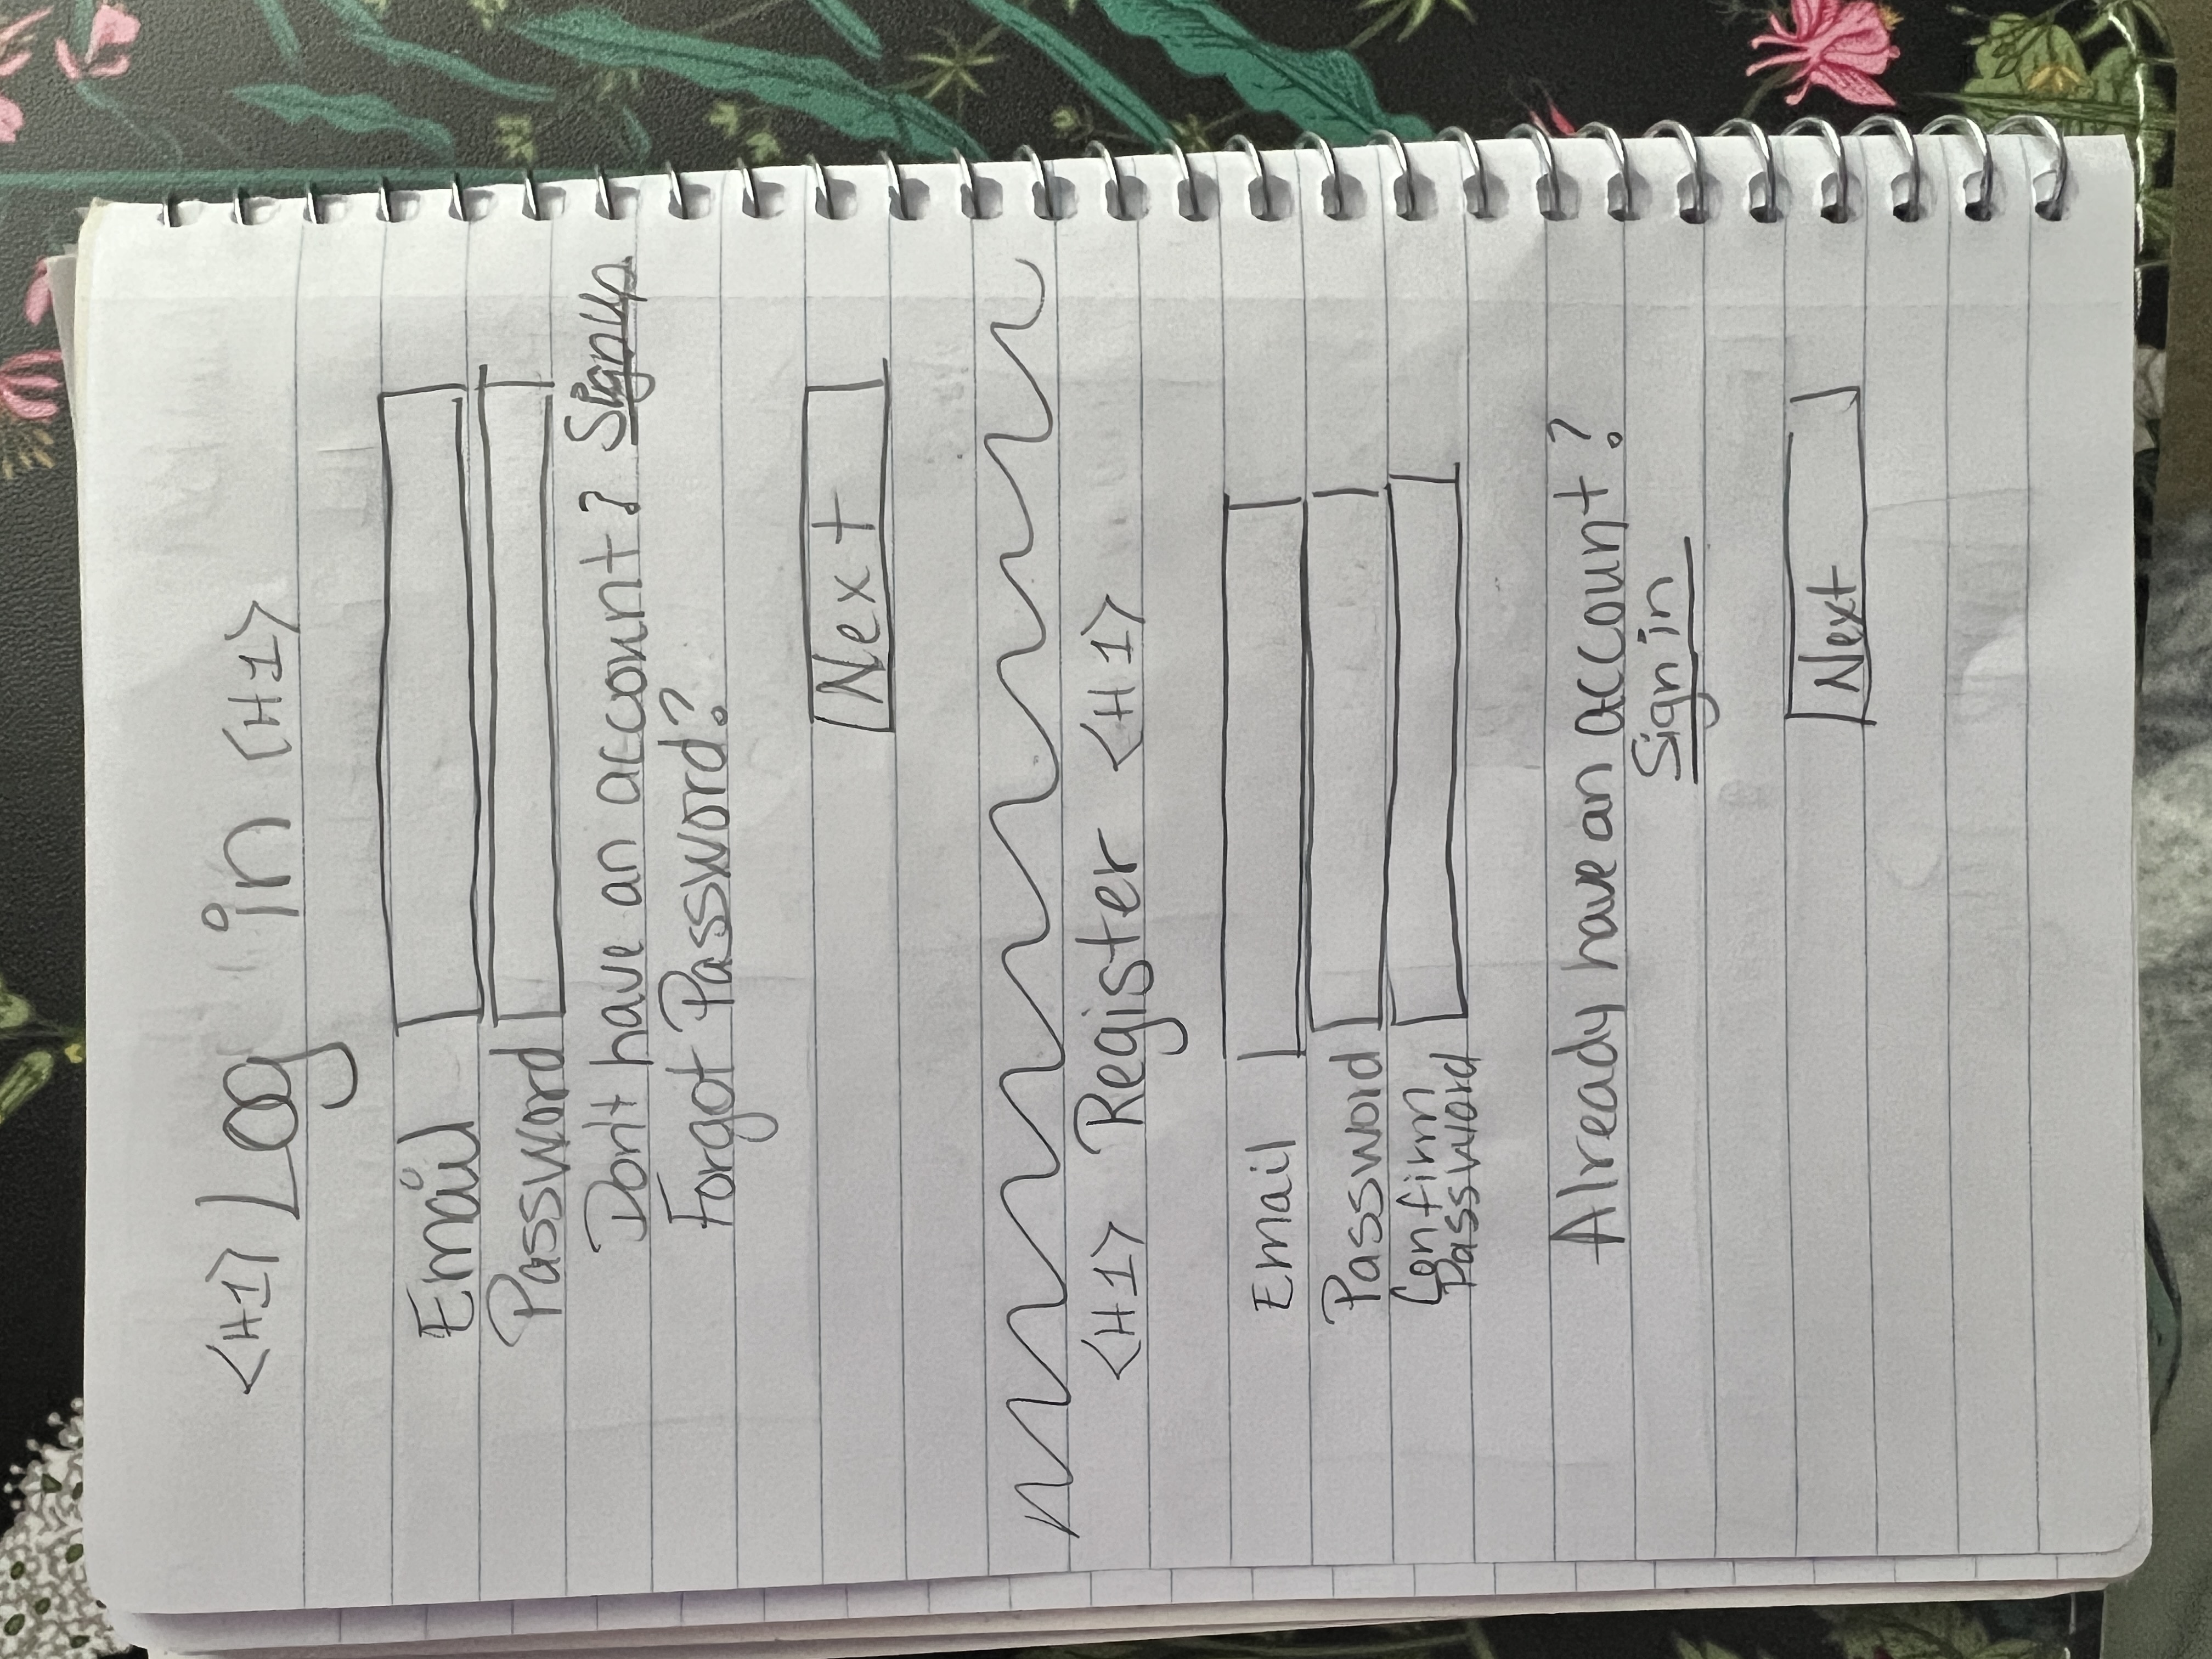 <H1> Log in <H1>
Email
Password
Don't have an account? Sign up
Forgot Password?
Next
<H1> Register <H1>
Email
Password
Confirm
Password
Already have an account?
Sign in
Next